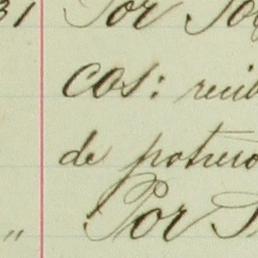 31 Por
cos: recib
de potrero
" Por